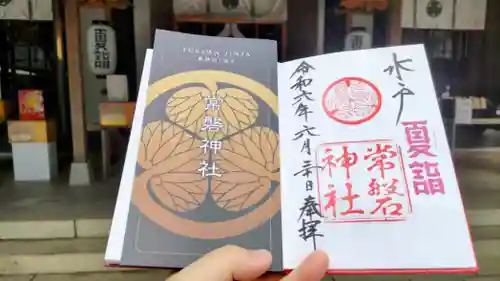 夏詣
TOKIWA JINJA
常磐神社
水戸
夏詣
常磐神社
令和六年六月三十日奉拝
夏詣